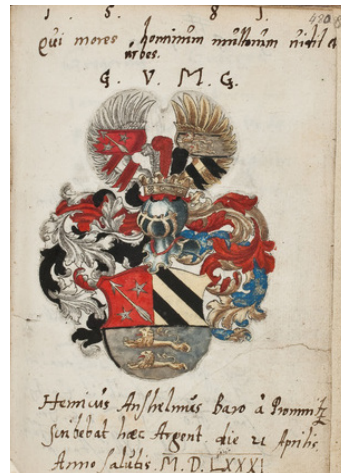 1 5 8 1.
Qui mores hominum multorum vidit &
urbes.
G. V. M. G.
Henricus Anshelmus Baro à Promnitz
scribebat hæc Argent. die 21 Aprilis
Anno salutis M. D. LXXXI